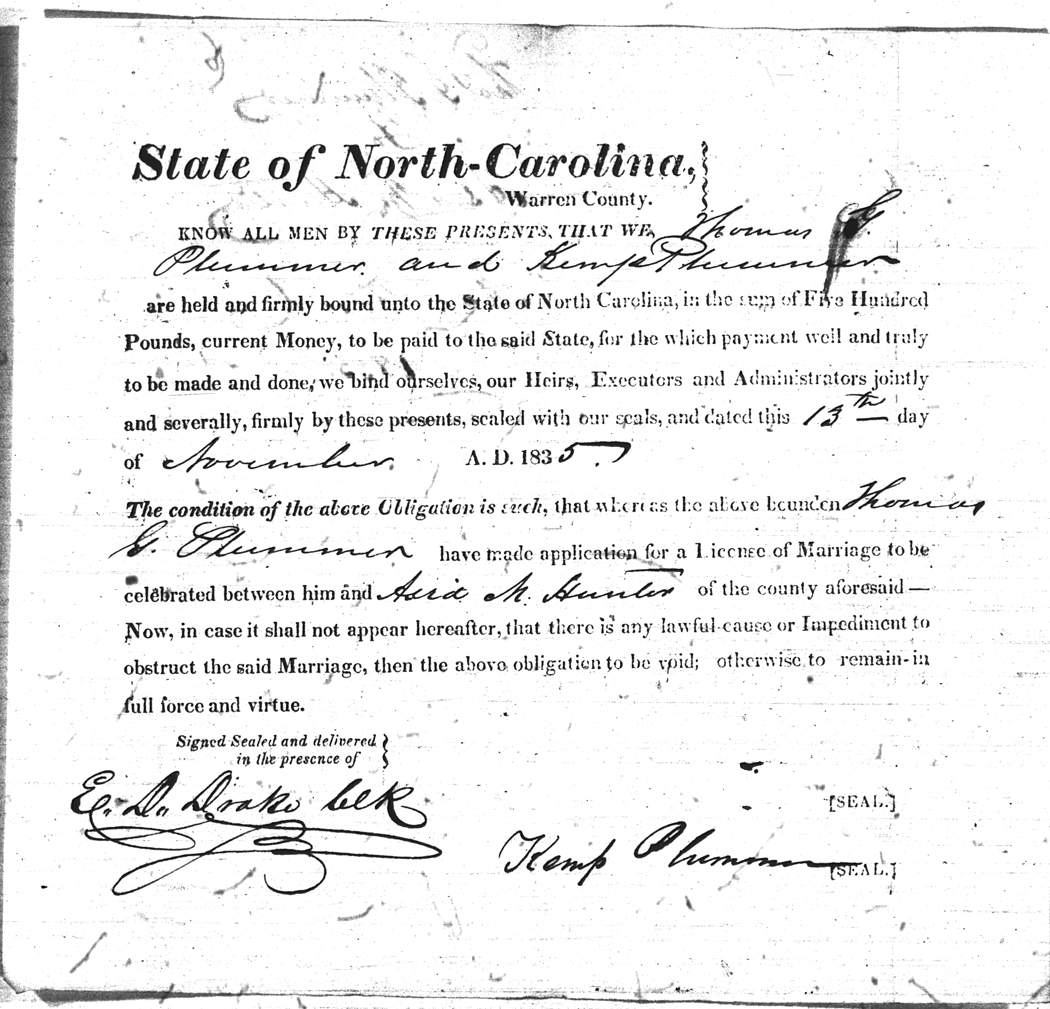 State of North-Carolina,
Warren County.
KNOW ALL MEN BY THESE PRESENTS, THAT WE, Thomas G.
Plummer and Kemp Plummer
are held and firmly bound unto the State of North Carolina, in the sum of Five Hundred
Pounds, current Money, to be paid to the said State, for the which payment well and truly
to be made and done, we bind ourselves, our Heirs, Executors and Administrators jointly
and severally, firmly by these presents, sealed with our seals, and dated this 13th day
of November A. D. 1835.
The condition of the above Obligation is such, that whereas the above bounden Thomas
G. Plummer have made application for a License of Marriage to be
celebrated between him and M. Hunter of the county aforesaid —
Now, in case it shall not appear hereafter, that there is any lawful cause or Impediment to
obstruct the said Marriage, then the above obligation to be void; otherwise to remain in
full force and virtue.
Signed Sealed and delivered
in the presence of
D. Drake Clk
[SEAL.]
Kemp Plummer [SEAL.]